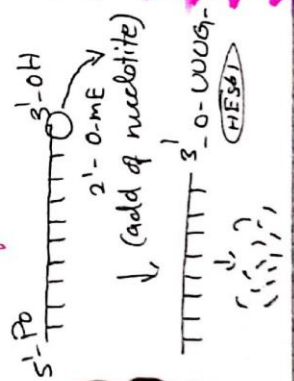 5'-Po
3'-OH
2'-O-mE
(add of nucleotite)
3'
-O-UUUG-
HESO1